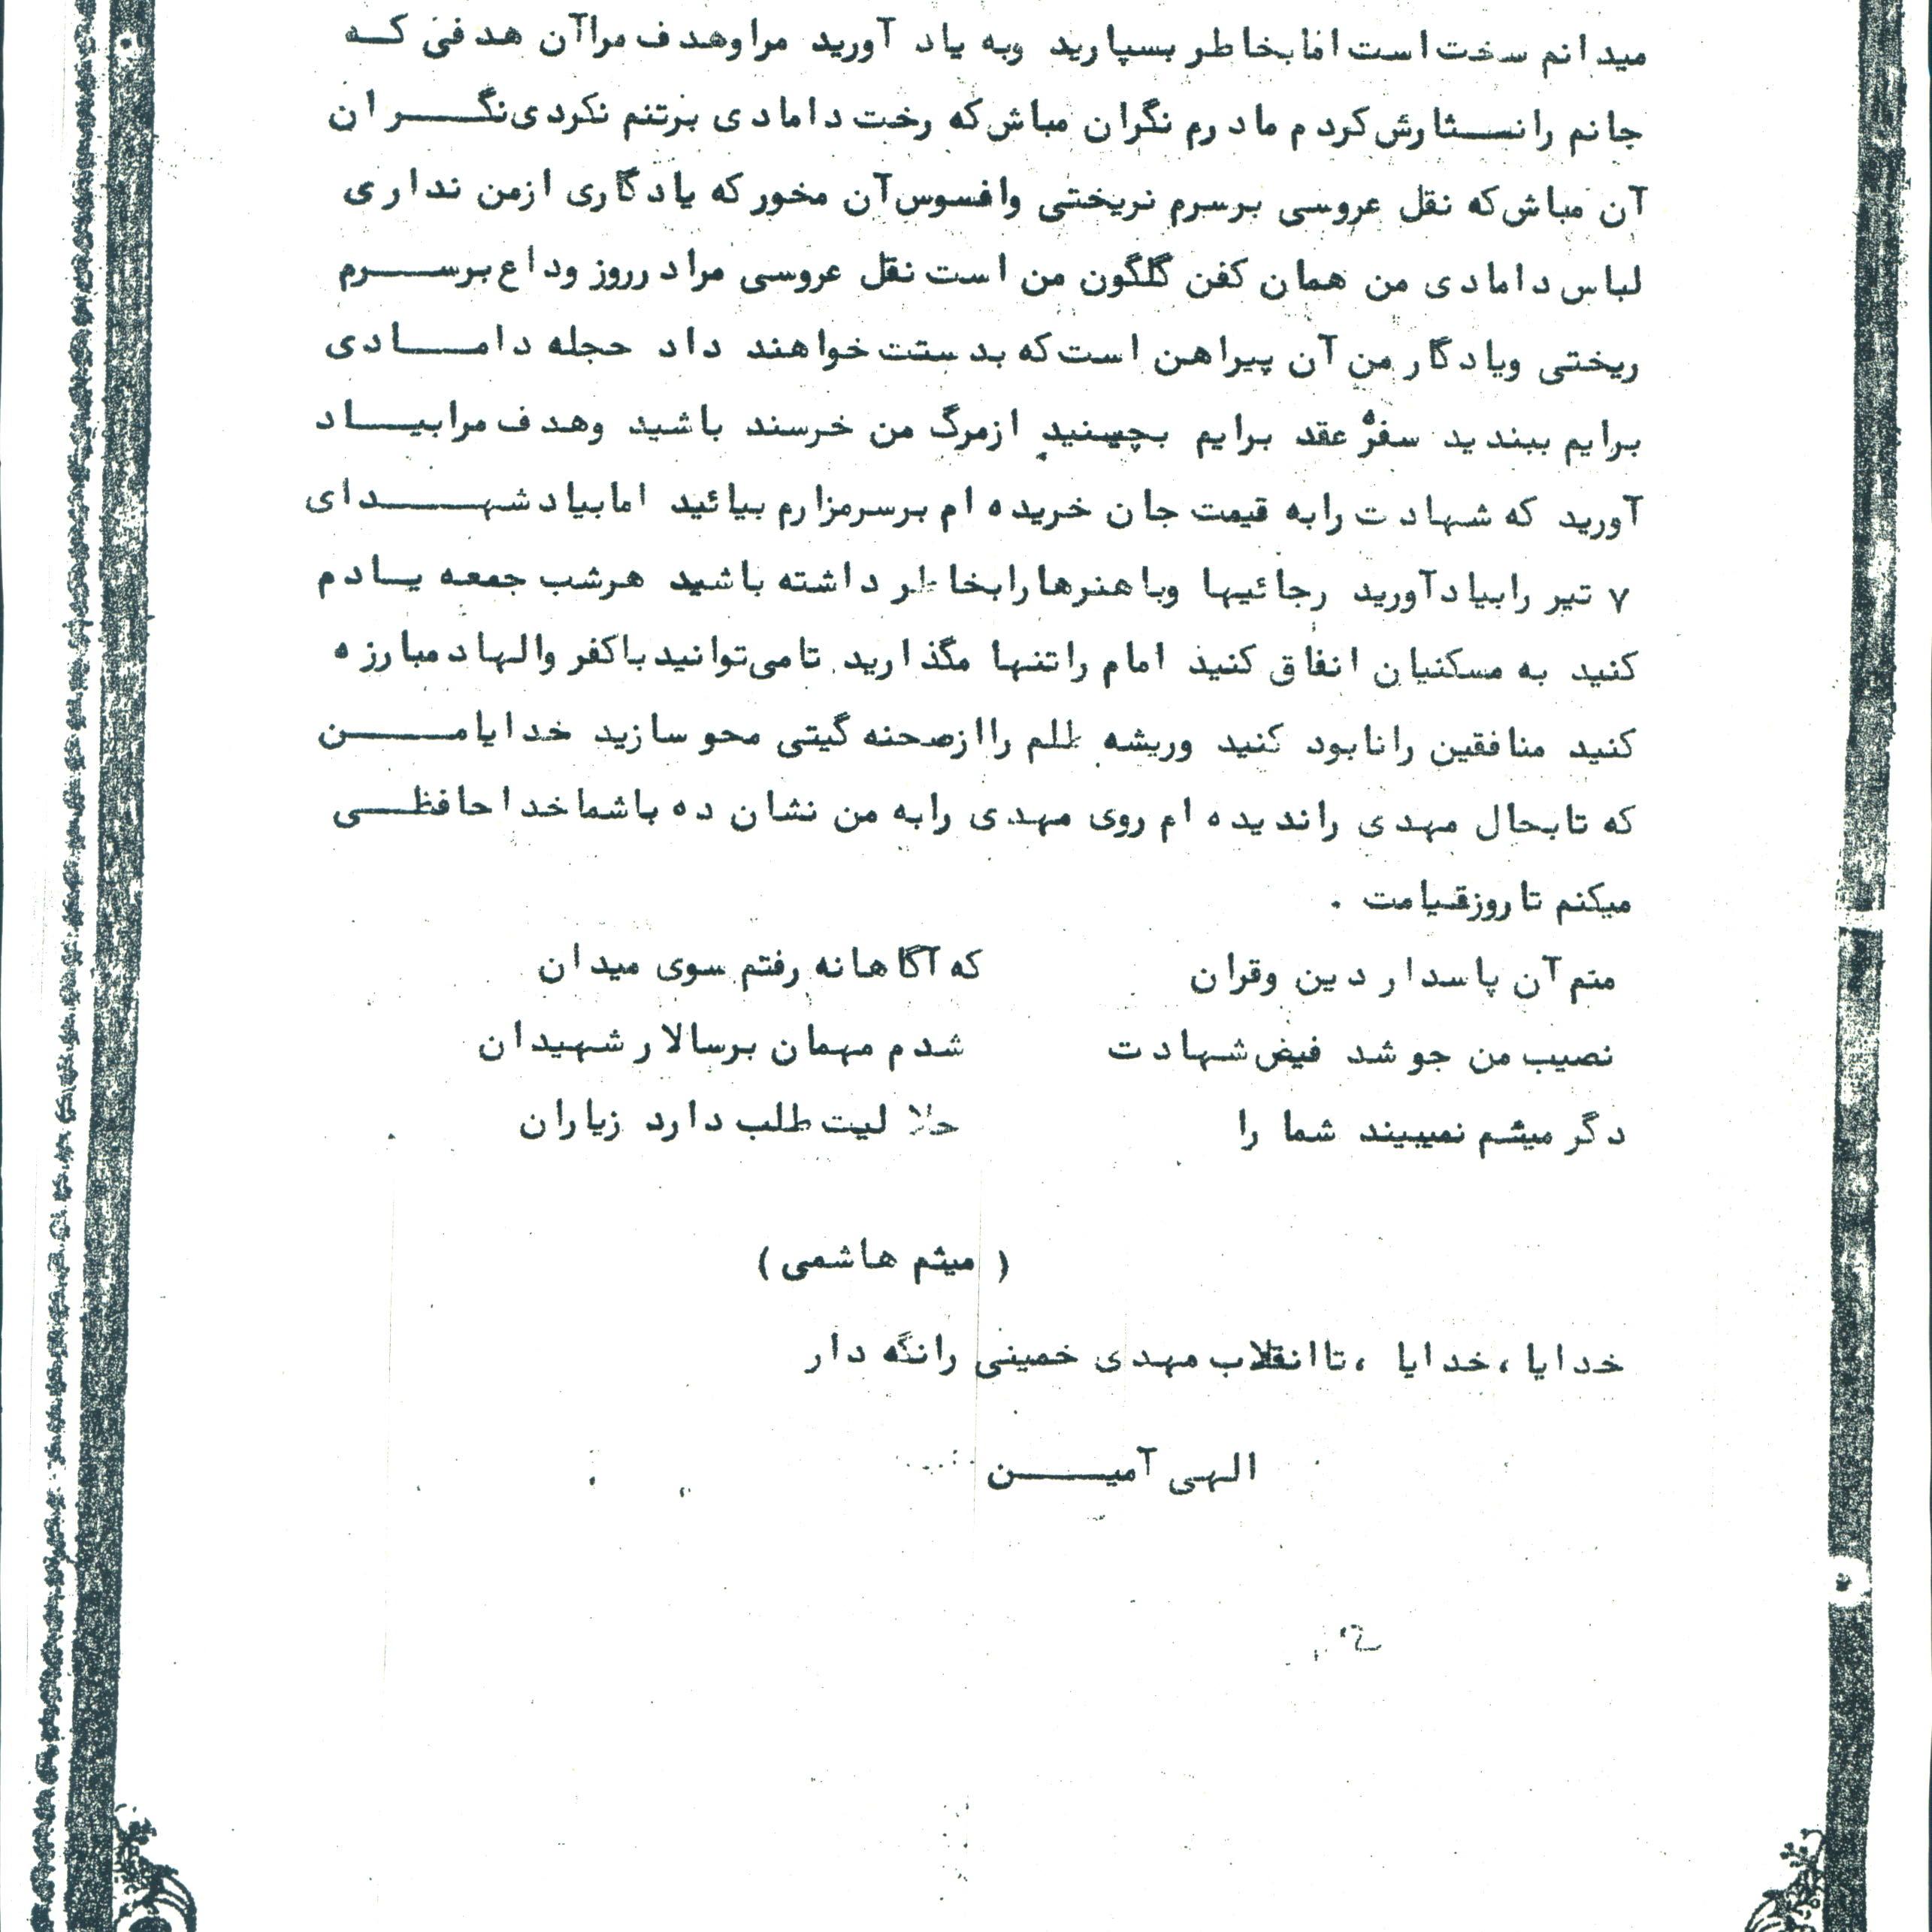 میدانم سخت است اما بخاطر بسپارید وبه یاد آورید مرا وهدف مرا آن هدفی کـه
جانم را نـــثارش کردم مادرم نگران مباش که رخت دامادی برتنم نکردی نگـــران
آن مباش که نقل عروسی برسرم نریختی وافسوس آن مخور که یادگاری ازمن نداری
لباس دامادی من همان کفن گلگون من است نقل عروسی مرا درروز وداع برســـرم
ریختی ویادگار من آن پیراهن است که بدستت خواهند داد حجله دامـــادی
برایم ببندید سفرهٔ عقد برایم بچینید ازمرگ من خرسند باشید وهدف مرابیـــاد
آورید که شهادت رابه قیمت جان خریده ام برسرمزارم بیائید امابیاد شهـــدای
۷ تیر رابیاد آورید رجائیها وباهنرها رابخاطر داشته باشید هرشب جمعه یـادم
کنید به مسکنیان انفاق کنید امام راتنها مگذارید تامی‌توانید باکفر والهاد مبارزه
کنید منافقین رانابود کنید وریشه ظلم راازصحنه گیتی محو سازید خدایامـــن
که تابحال مهدی راندیده ام روی مهدی رابه من نشان ده باشما خداحافظـــی
میکنم تا روزقیامت .
منم آن پاسدار دین وقران که آگاهانه رفتم سوی میدان
نصیب من جو شد فیض شهادت شدم مهمان برسالار شهیدان
دگر میثم نمیبیند شما را حلالیت طلب دارد زیاران
( میثم هاشمی )
خدایا ، خدایا ، تاانقلاب مهدی خمینی رانگه دار
الهی آمیـــن